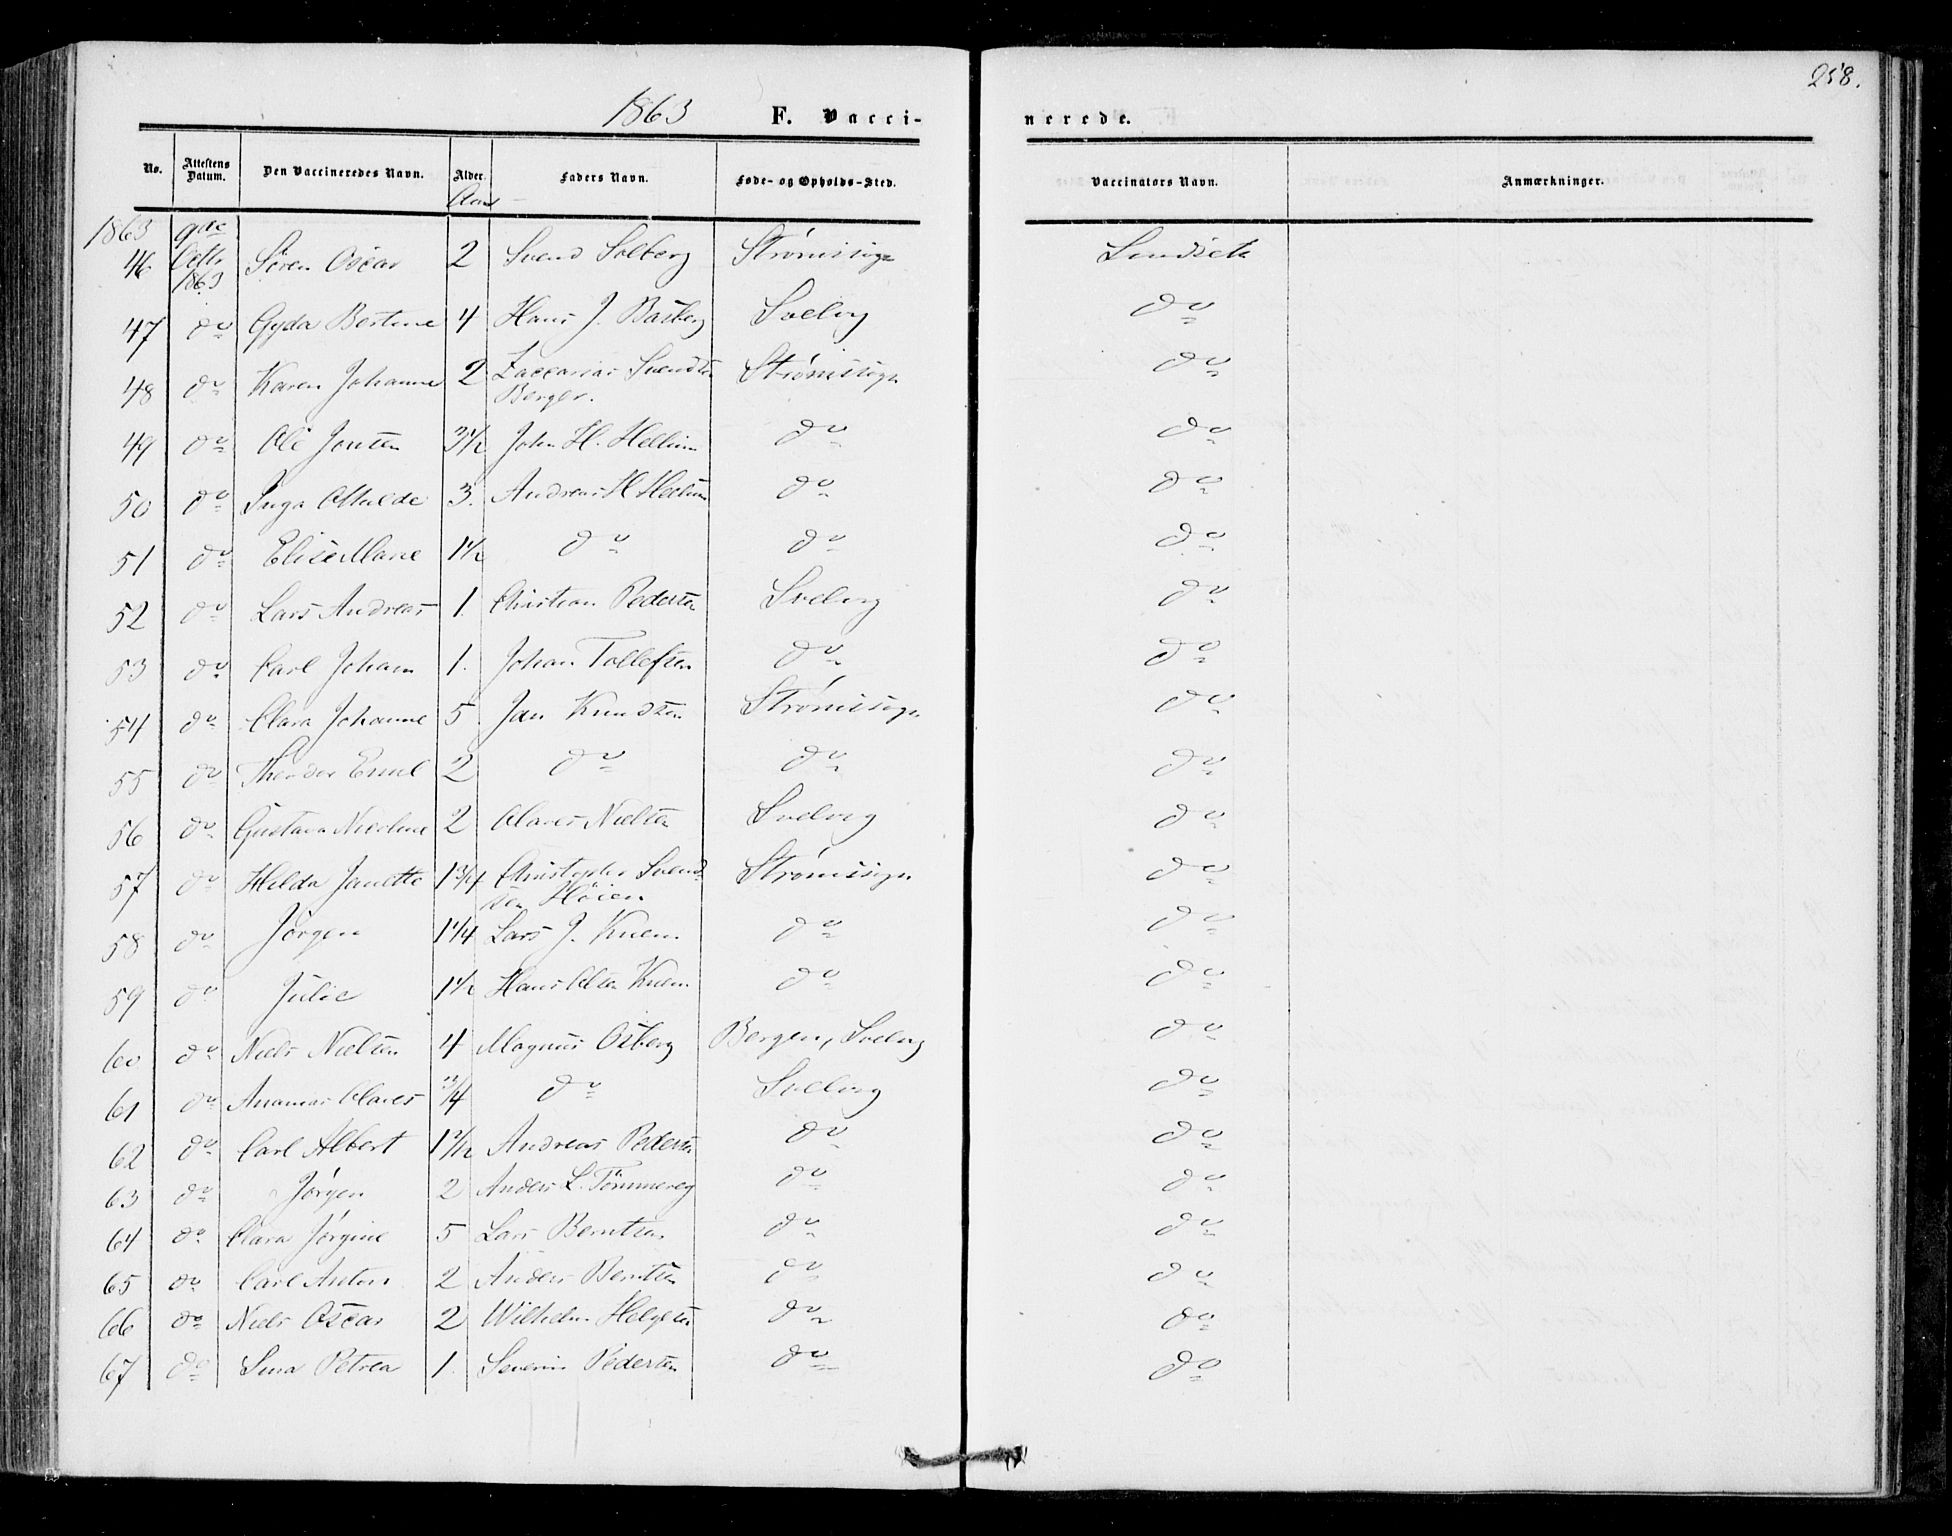 258.
1863 F. Vacci- nerede.
No. Attestens Datum. Den Vaccineredes Navn. Alder. Faders Navn. Føde- og Opholds-Sted. Vaccinators Navn. Anmærkninger.
Aar
1863 9de
46 Octb. 1863 Søren Oscar 2 Svend Solberg Strømssogn
47 do Gyda Bertine 4 Hans J. Basberg Svelvig do
48 do Karen Johanne 2 Zaccarias Svendsen Berger. Strømssogn do
49 do Ole Jonsen 3 1/2 John H. Hellum do do
50 do Inga Mathilde 3. Andreas H. Hellum do do
51 do Elise Marie 1 1/2 do do do
52 do Lars Andreas 1. Christian Pedersen Svelvig do
53 do Carl Johan 1. Johan Tollefsen do do
54 do Clara Johanne 5 Jan Knudsen Strømssogn do
55 do Theodor Emil 2 do do do
56 do Gustava Nicoline 2 Olaves Nielsen Svelvig do
57 do Hilda Janette 1 3/4 Christopher Svendsen Høien Strømssogn do
58 do Jørgen 1 1/4 Lars J. Knem do do
59 do Julie 1 1/2 Hans Olsen Knem do do
60 do Niels Nielsen 4 Magnus Osberg Bergen, Svelvig do
61 do Olaves 3/4 do Svelvig do
62 do Carl Albert 1 1/2 Andreas Pedersen do do
63 do Jørgen 2 Anders L. Tømmereg do do
64 do Clara Jørgine 5 Lars Berntsen do do
65 do Carl Anton 2 Anders Berntsen do do
66 do Niels Oscar 2 Wilhelm Helgesen do do
67 do Sina Petrea 1. Severin Pedersen do do